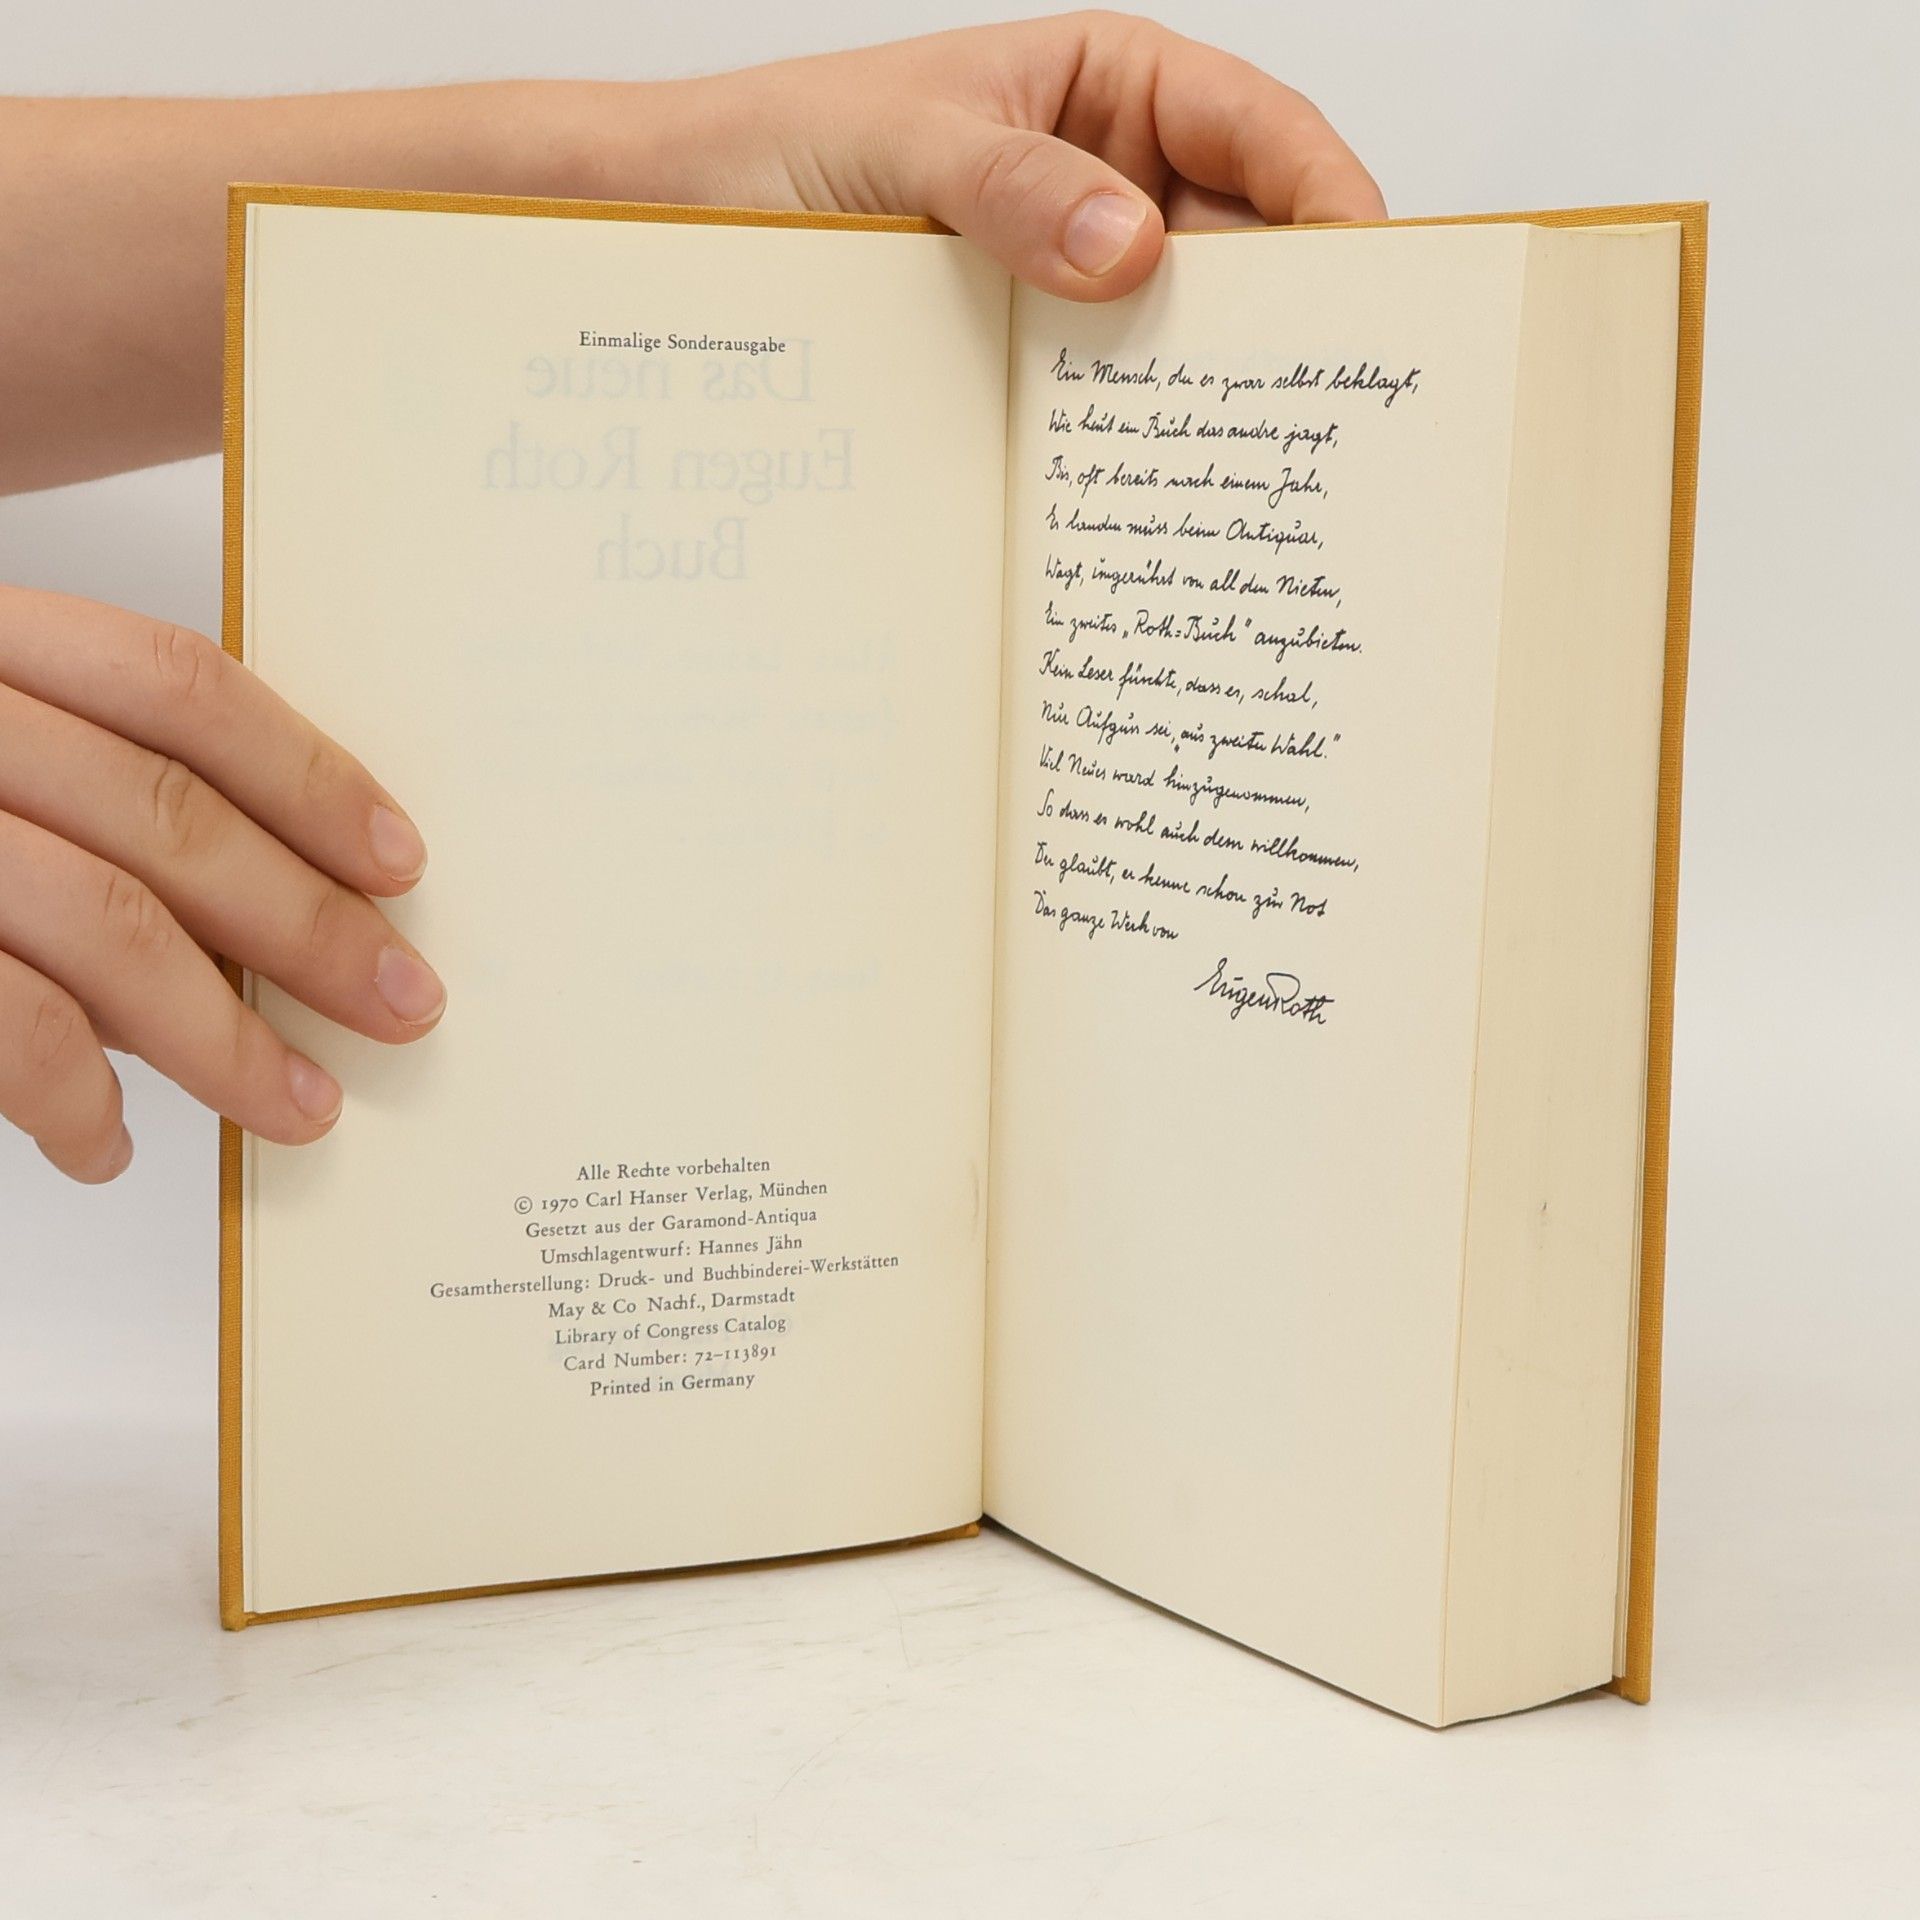 Einmalige Sonderausgabe
Das neue
Eugen Roth
Buch
Alle Rechte vorbehalten
© 1970 Carl Hanser Verlag, München
Gesetzt aus der Garamond-Antiqua
Umschlagentwurf: Hannes Jähn
Gesamtherstellung: Druck- und Buchbinderei-Werkstätten
May & Co Nachf., Darmstadt
Library of Congress Catalog
Card Number: 72–113891
Printed in Germany
Ein Mensch, der es zwar selbst beklagt,
Wie heut ein Buch das andre jagt,
Bis, oft bereits nach einem Jahr,
Es landen muss beim Antiquar,
Wagt, ungerührt von all den Nieten,
Ein zweites „Roth=Buch" anzubieten.
Kein Leser fürchte, dass es, schal,
Nur Aufguss sei, „aus zweiter Wahl."
Viel Neues ward hinzugenommen,
So dass es wohl auch dem willkommen,
Der glaubt, er kenne schon zur Not
Das ganze Werk von
Eugen Roth